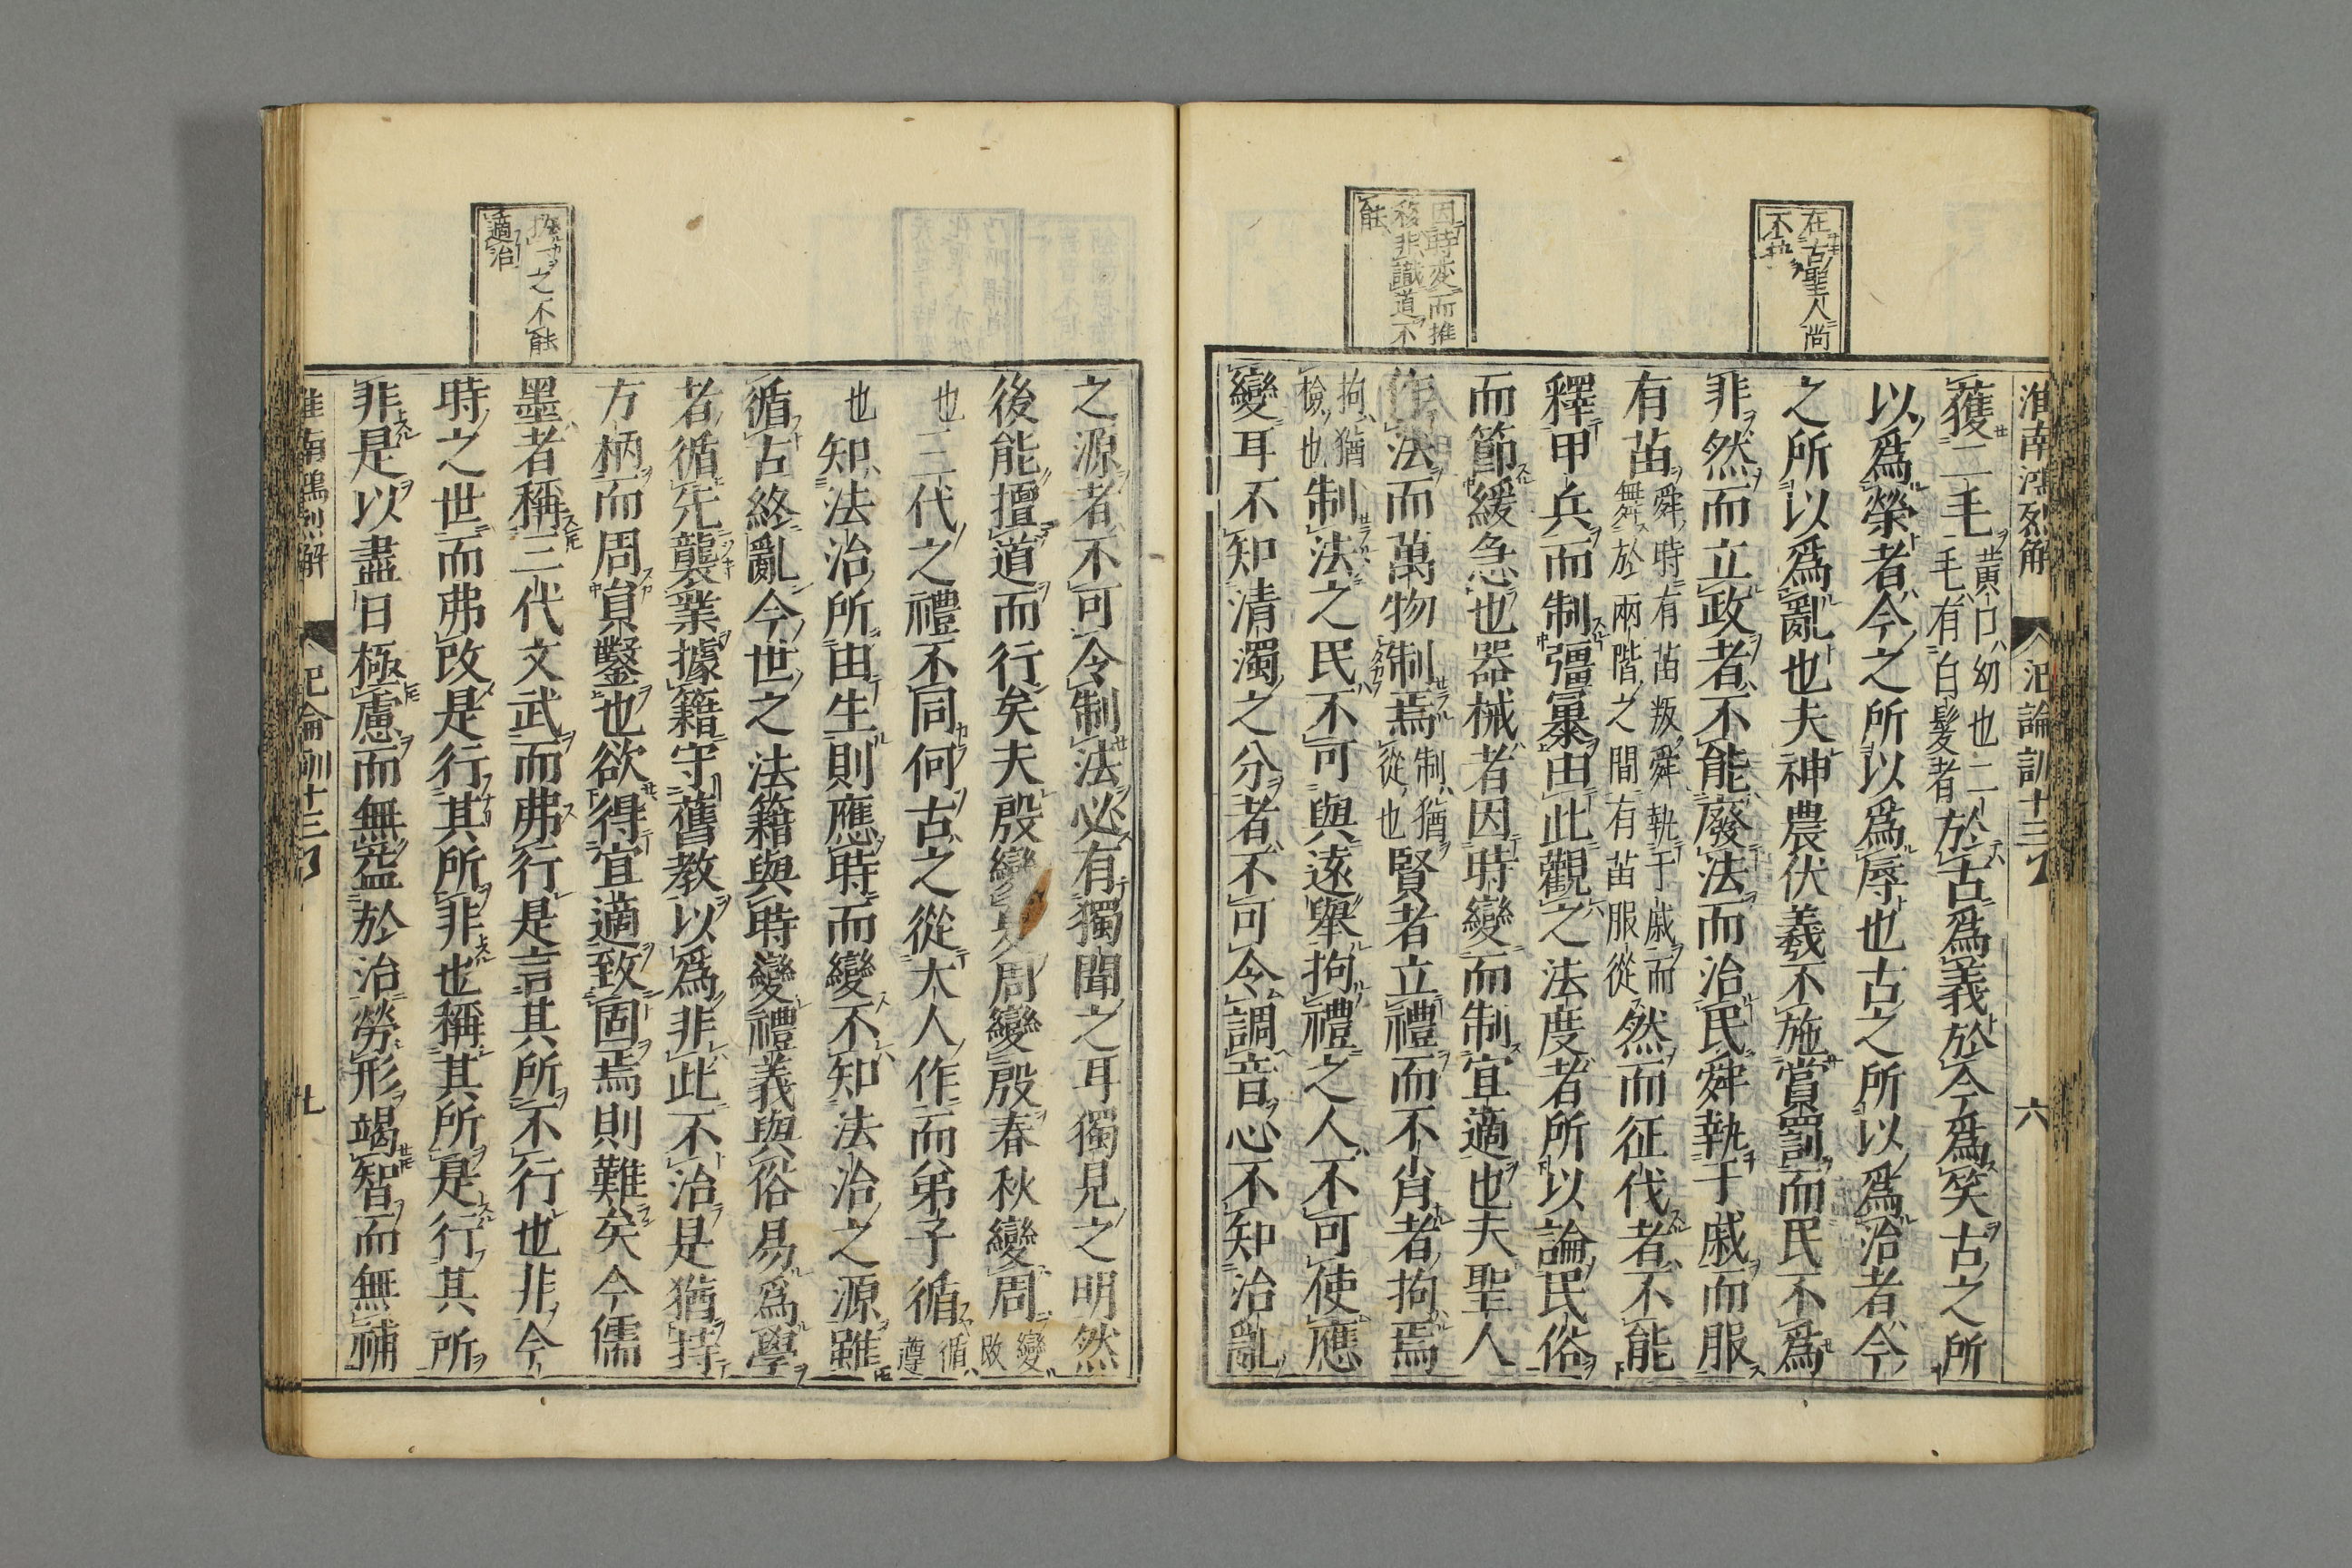 淮南鴻烈解
氾論訓十三
六
在古聖人尚
不執
因時變而推
移非識道不
能
獲二毛黄口幼也二毛有白髮者於古爲義於今爲笑古之所
以爲榮者今之所以爲辱也古之所以爲治者今
之所以爲亂也夫神農伏羲不施賞罰而民不爲
非然而立政者不能廢法而治民舜執干戚而服
有苗舜時有苗叛舜執干戚而舞於兩階之間有苗服從然而征伐者不能
釋甲兵而制彊暴由此觀之法度者所以論民俗
而節緩急也器械者因時變而制宜適也夫聖人
作法而萬物制焉制猶從也賢者立禮而不肖者拘焉
拘猶檢也制法之民不可與遠舉拘禮之人不可使應
變耳不知清濁之分者不可令調音心不知治亂
之源者不可令制法必有獨聞之耳獨見之明然
後能擅道而行矣夫殷變夏周變殷春秋變周變改
也三代之禮不同何古之從大人作而弟子循循遵
也知法治所由生則應時而變不知法治之源雖
循古終亂今世之法籍與時變禮義與俗易爲學
者循先襲業據籍守舊教以爲非此不治是猶持
方柄而周員鑿也欲得宜適致固焉則難矣今儒
墨者稱三代文武而弗行是言其所不行也非今
時之世而弗改是行其所非也稱其所是行其所
非是以盡日極慮而無益於治勞形竭智而無補
之不能
適治
淮南鴻烈解
氾論訓十三
七